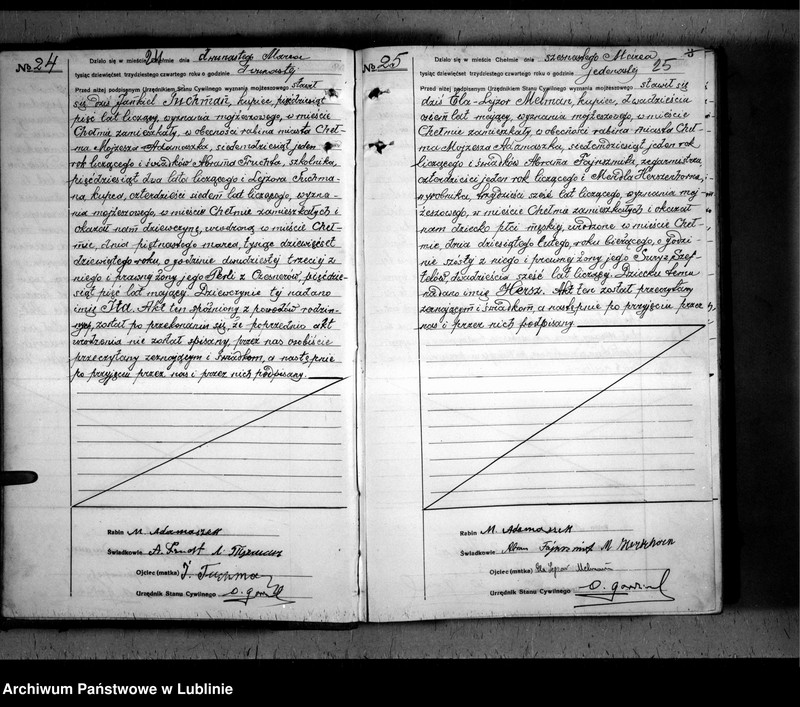 № 24
24
Działo się w mieście Chełmie dnia dwunastego Marca
tysiąc dziewięćset trzydziestego czwartego roku o godzinie
Przed niżej podpisanym Urzędnikiem Stanu Cywilnego wyznania mojżeszowego stawił
się dziś Jankiel Tuchman, kupiec, pięćdziesiąt
pięć lat liczący, wyznania mojżeszowego, w mieście
Chełmie zamieszkały, w obecności rabina miasta Cheł-
ma Mojżesza Adamaszka, siedemdziesiąt jeden
rok liczącego i świadków Abrama szkolnika,
pięćdziesiąt dwa lata liczącego i Lejzora Tuchma-
na kupca, czterdzieści siedem lat liczącego, wyzna-
nia mojżeszowego, w mieście Chełmie zamieszkałych i
okazał nam dziewczynę, urodzoną w mieście Cheł-
mie, dnia piętnastego marca, tysiąc dziewięćset
dziewiątego roku, o godzinie dwudziestej trzeciej z
niego i prawnej żony jego Perli z pięćdzie-
siąt pięć lat mającej. Dziewczynie tej nadano
imię Ita. Akt ten spóźniony z powodów rodzin-
nych, został po przekonaniu się, że poprzednio akt
urodzenia nie został spisany, przez nas osobiście
przeczytany zeznającym i świadkom, a następnie
po przyjęciu przez nas i przez nich podpisany.
Rabin M. Adamaszek
Świadkowie
Ojciec (matka) J. Tuchman
Urzędnik Stanu Cywilnego
№ 25
25
Działo się w mieście Chełmie dnia szesnastego Marca
tysiąc dziewięćset trzydziestego czwartego roku o godzinie jedenastej
Przed niżej podpisanym Urzędnikiem Stanu Cywilnego wyznania mojżeszowego stawił się
dziś Ela-Lejzor Melman, kupiec, dwadzieścia
osiem lat mający, wyznania mojżeszowego, w mieście
Chełmie zamieszkały, w obecności rabina miasta Cheł-
ma Mojżesza Adamaszka, siedemdziesiąt jeden rok
liczącego i świadków Abrama Fajnsznida, zegarmistrza,
czterdzieści jeden rok liczącego i Motela Herszenhorna,
wyrobnika, trzydzieści sześć lat liczącego, wyznania moj-
żeszowego, w mieście Chełmie zamieszkałych i okazał
nam dziecko płci męskiej, urodzone w mieście Cheł-
mie, dnia dziesiątego lutego, roku bieżącego, o godzi-
nie szóstej z niego i prawnej żony jego Surys
dwadzieścia sześć lat liczącej. Dziecku temu
nadano imię Hersz. Akt ten został przeczytany
zeznającym i świadkom, a następnie po przyjęciu przez
nas i przez nich podpisany.
Rabin M. Adamaszek
Świadkowie
Ojciec (matka)
Urzędnik Stanu Cywilnego
Archiwum Państwowe w Lublinie